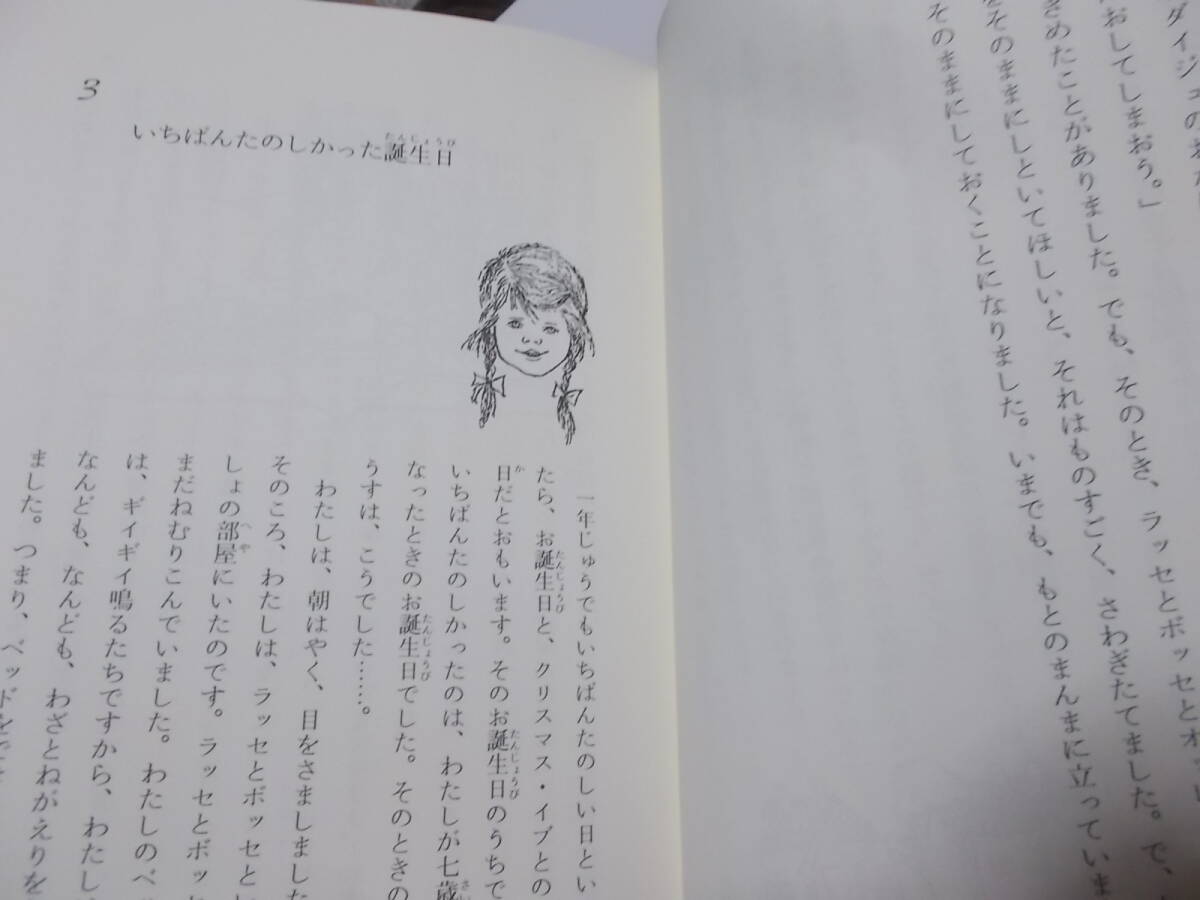 ダイジュのわた
おしてしまおう。」
きめたことがありました。でも、そのとき、ラッセとボッセとオッレ
をそのままにしといてほしいと、それはものすごく、さわぎたてました。で、
そのままにしておくことになりました。いまでも、もとのまんまに立っていま
3
いちばんたのしかった誕生日
たんじょうび
一年じゅうでもいちばんたのしい日とい
たら、お誕生日と、クリスマス・イブとの
たんじょうび
日だとおもいます。そのお誕生日のうちで
か
たんじょうび
いちばんたのしかったのは、わたしが七歳
さい
なったときのお誕生日でした。そのときの
たんじょうび
うすは、こうでした……。
わたしは、朝はやく、目をさましました
そのころ、わたしは、ラッセとボッセとい
しょの部屋にいたのです。ラッセとボッ
へや
まだねむりこんでいました。わたしのベ
は、ギイギイ鳴るたちですから、わたし
なんども、なんども、わざとねがえりを
ました。つまり、ベッドを